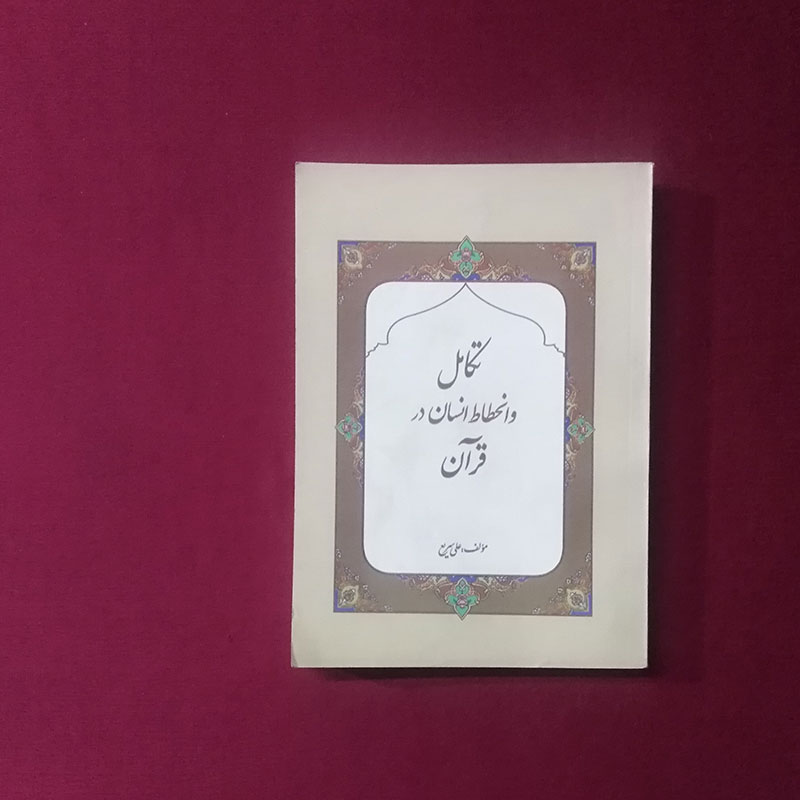 تکامل
وانحطاط انسان در
قرآن
مؤلف: علی سریع